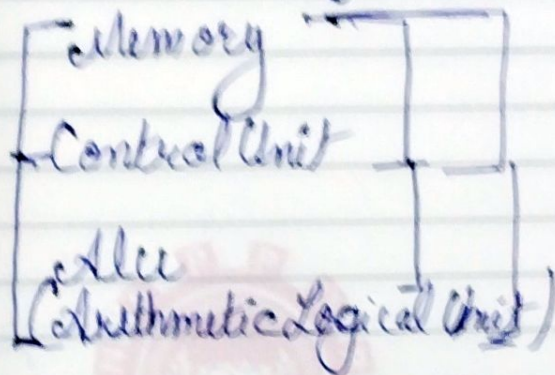 Memory
Control Unit
Alu
(Arithmetic Logical Unit)